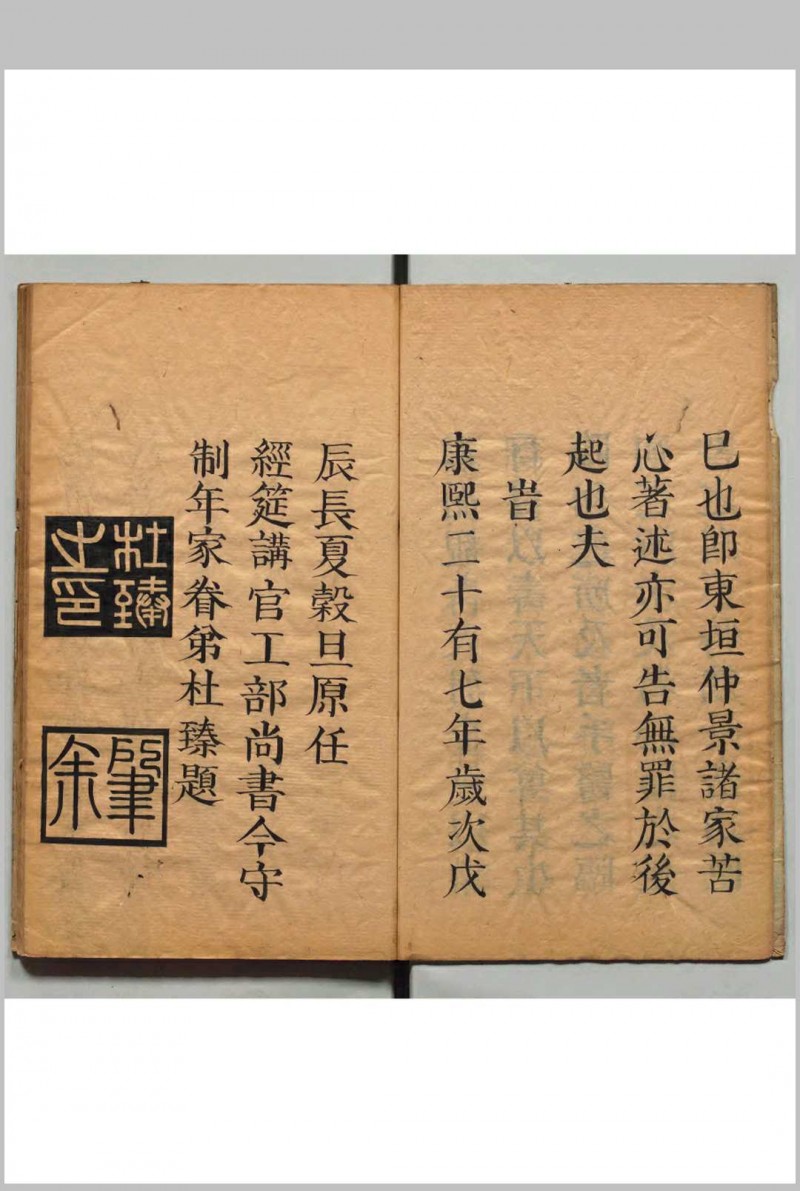 巳也卽東垣仲景諸家苦
心著述亦可告無罪於後
起也夫
旹
康熙二十有七年歲次戊
辰長夏穀旦原任
經筵講官工部尚書今守
制年家眷弟杜臻題
杜臻之印
肇余